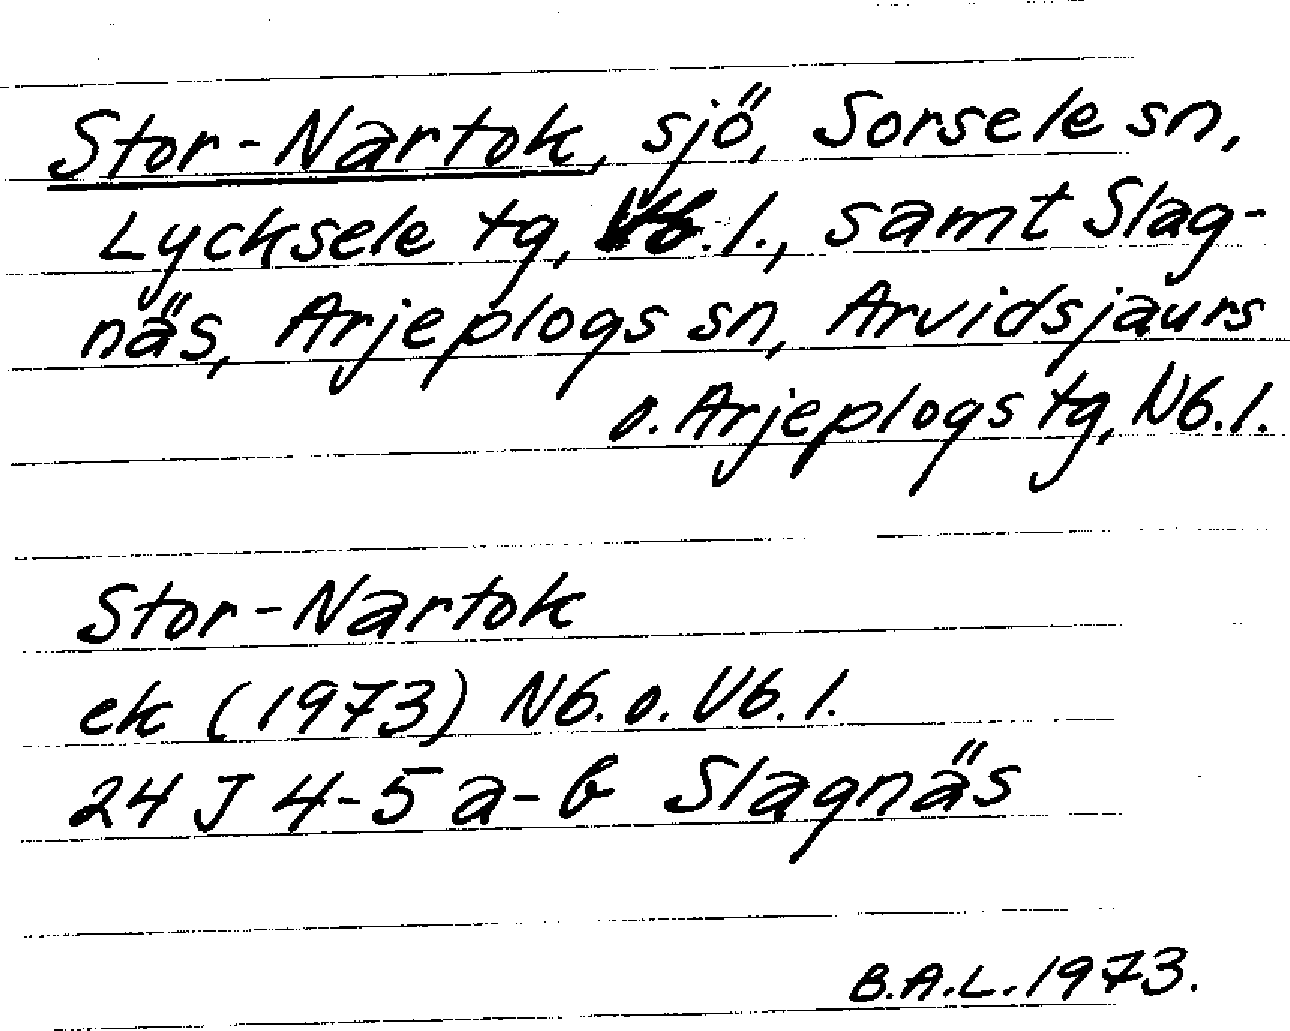 Stor-Nartok, sjö, Sorsele sn,
Lycksele tg, Vb.l., samt Slag-
näs, Arjeplogs sn, Arvidsjaurs
o. Arjeplogs tg, Nb.l.
Stor-Nartok
ek (1973) Nb. o. Vb. l.
24 J 4-5 a-b Slagnäs
B.A.L. 1973.